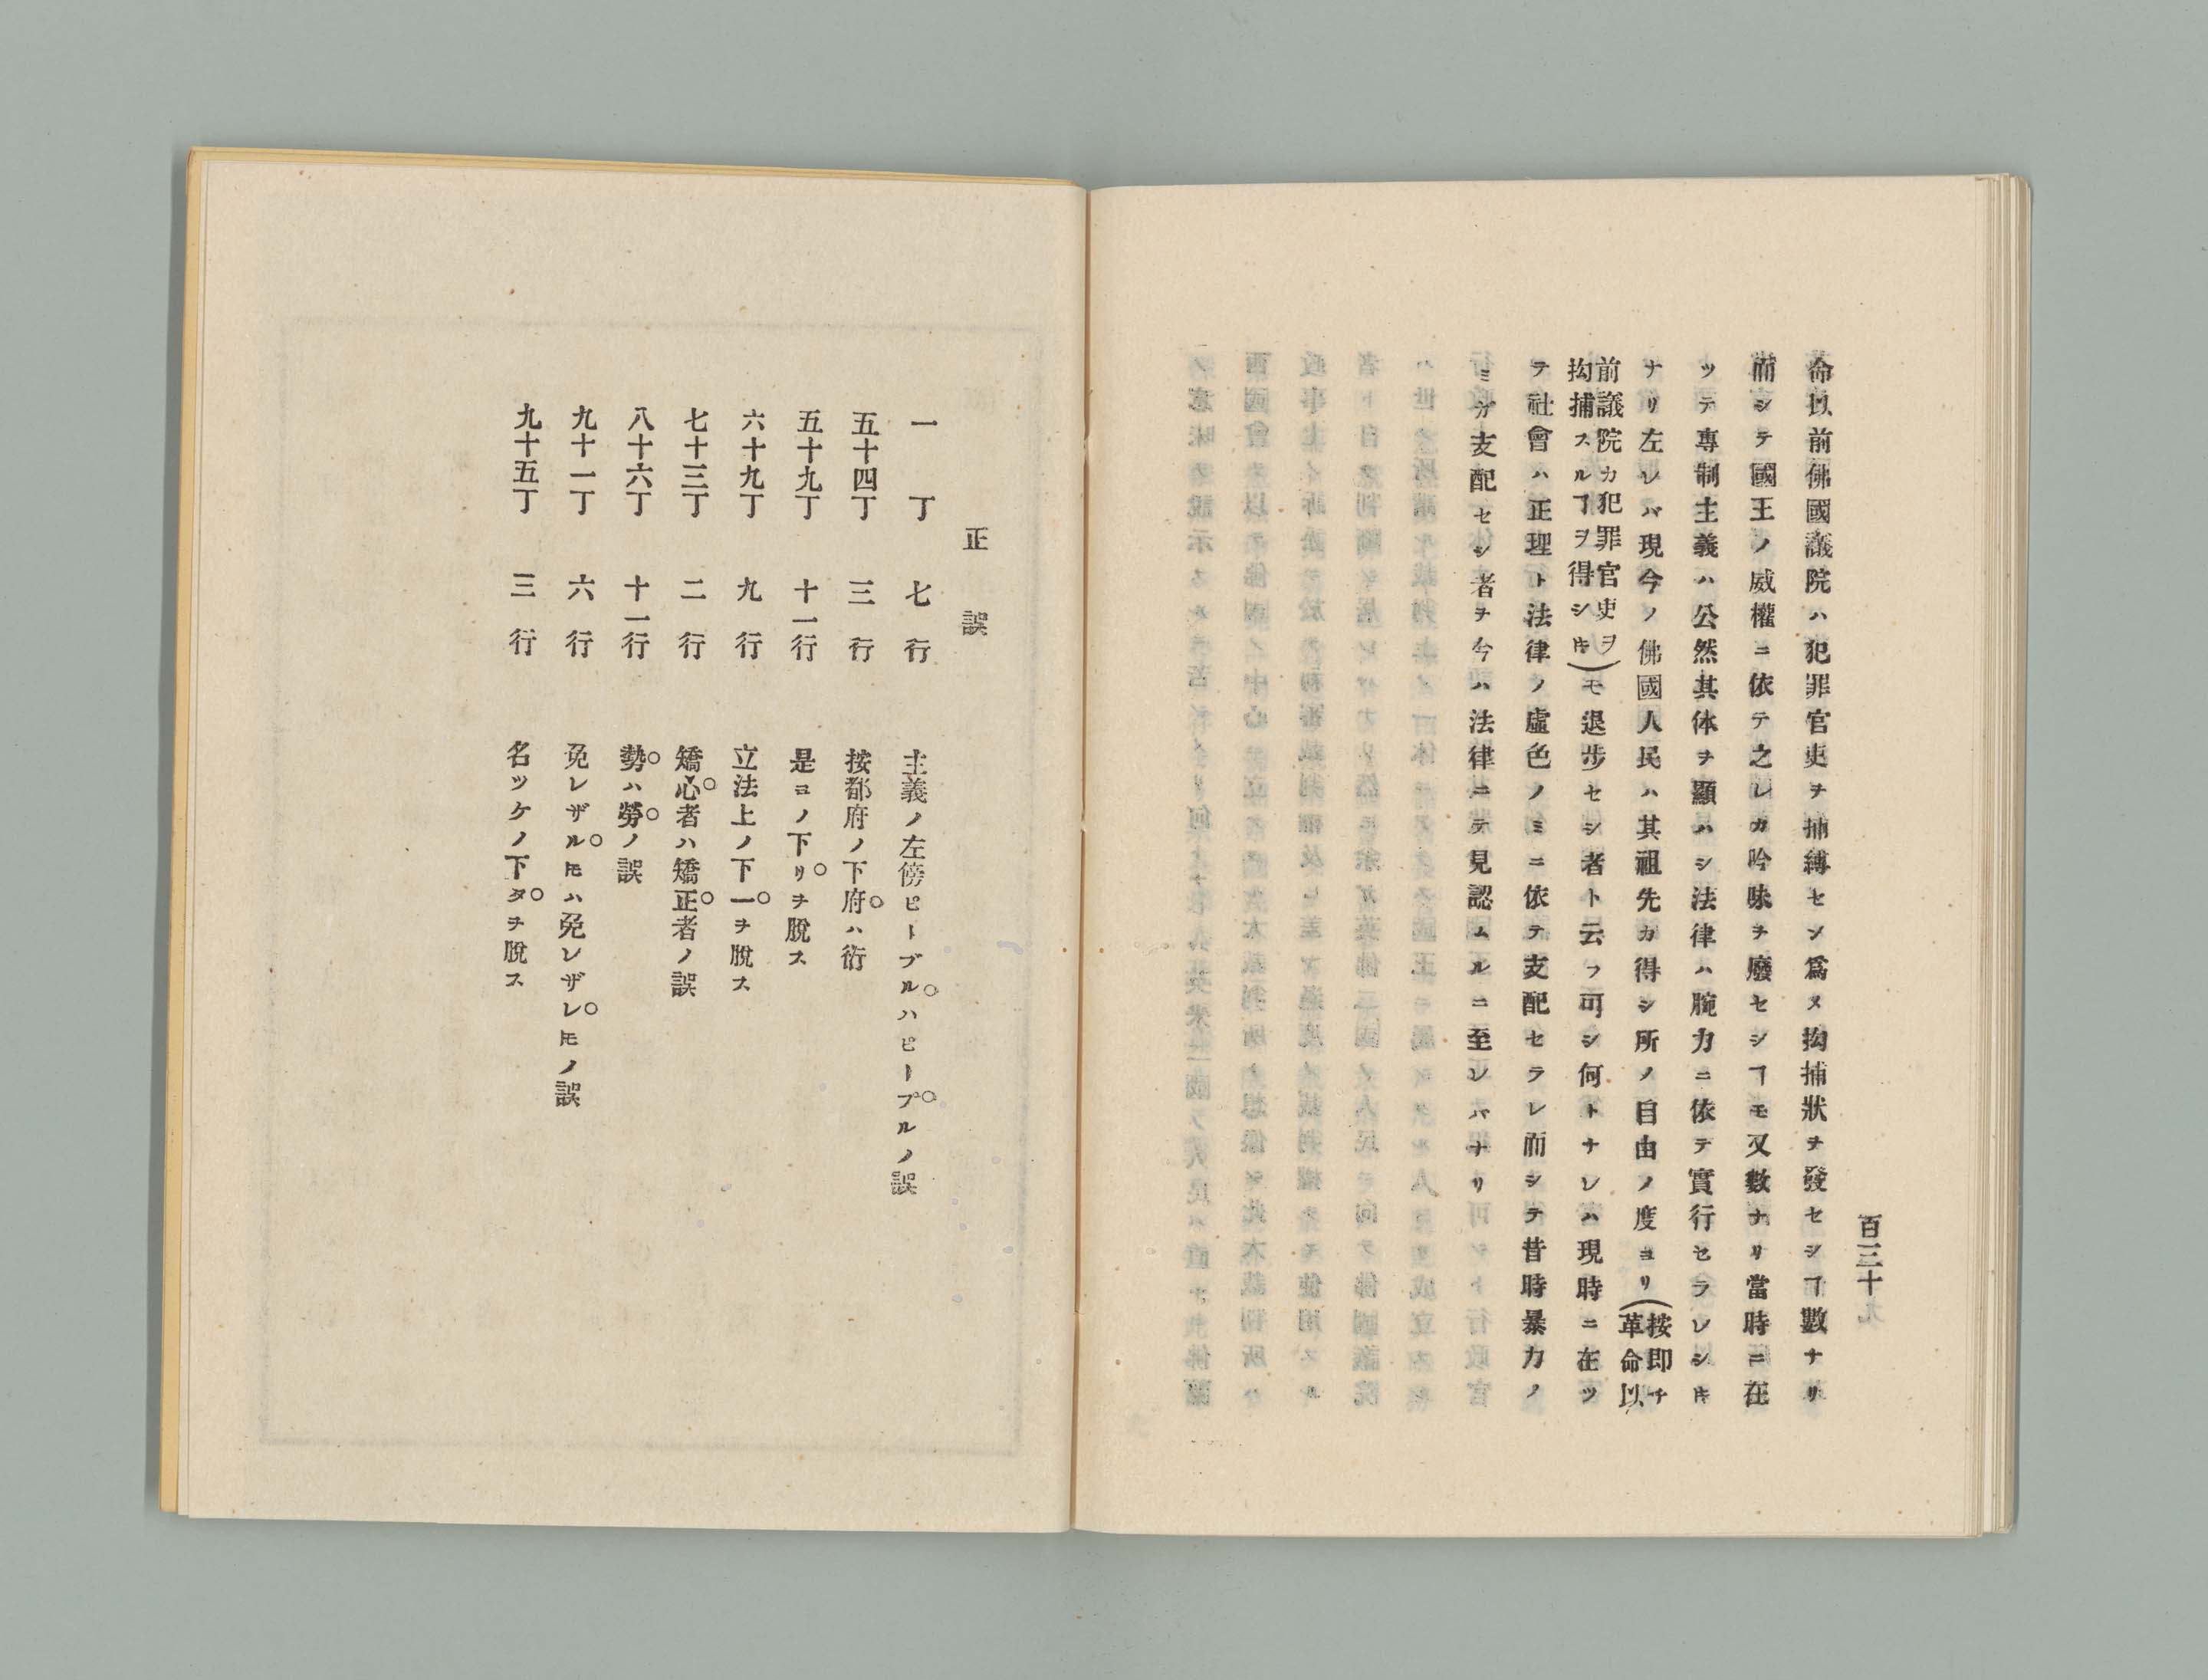 百三十九
命以前佛國議院ハ犯罪官吏ヲ捕縛セシ爲メ拘捕狀ヲ發セシヿ數ナリ
而シテ國王ノ威權ニ依テ之レカ吟味ヲ廢セシヿモ又數ナリ當時ニ在
ッテ專制主義ハ公然其体ヲ顯ハシ法律ハ腕力ニ依テ實行セラレシ𪜈
ナリ左レバ現今ノ佛國人民ハ其祖先カ得シ所ノ自由ノ度ヨリ(按即チ革命以
前議院カ犯罪官吏ヲ拘捕スルヿヲ得シ𪜈)モ退步セシ者ト云フ可シ何トナレハ現時ニ在ッ
テ社會ハ正理ト法律ノ虛色ノミニ依テ支配セラレ而シテ昔時暴力ノ
ミガ支配セシ者ヲ今ハ法律ニテ見認ムルニ至レバナリ
正誤
一丁 七行 主義ノ左傍ピーブルハピープルノ誤
五十四丁 三行 按都府ノ下府ハ衍
五十九丁 十一行 是ヨノ下リヲ脫ス
六十九丁 九行 立法上ノ下一ヲ脫ス
七十三丁 二行 矯心者ハ矯正者ノ誤
八十六丁 十一行 勢ハ勞ノ誤
九十一丁 六行 免レザル𪜈ハ免レザレ𪜈ノ誤
九十五丁 三行 名ッケノ下タヲ脫ス